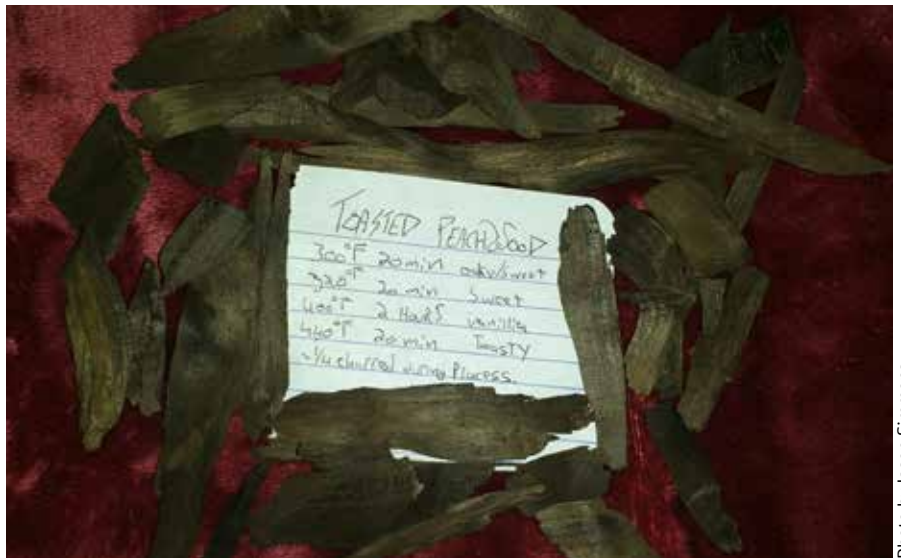 TOASTED PEACHWOOD
300°F 20min oaky/sweet
320°F 20 min Sweet
400°F 2 Hours vanillia
440°F 20 min Toasty
~1/4 charred during Process.